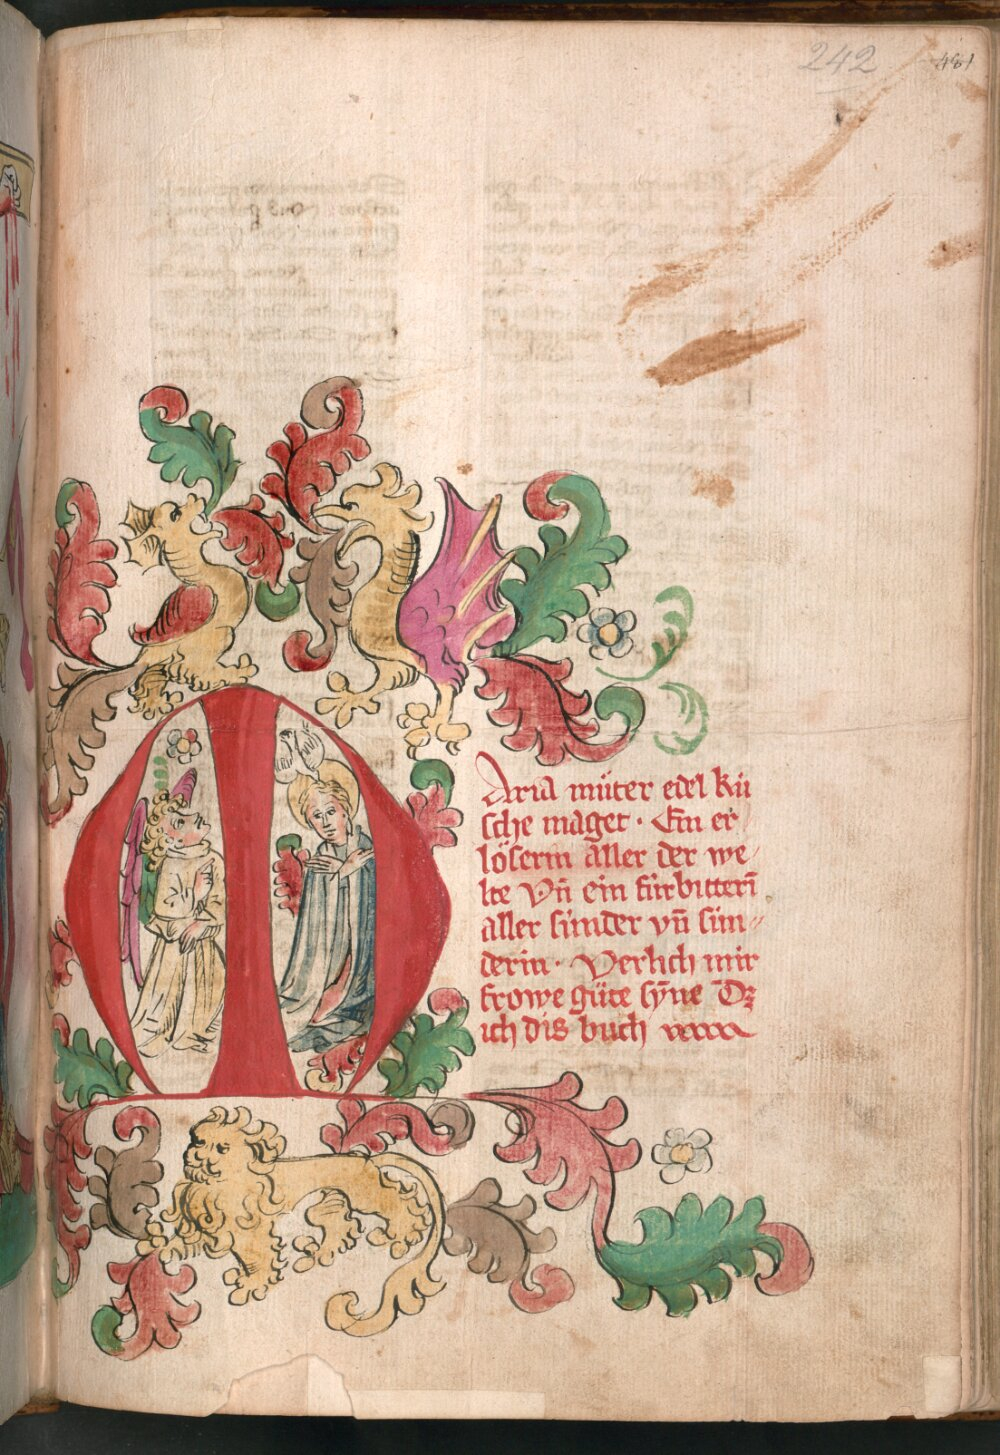 242
481
Maria muͤter edel kuͤ
sche maget · Ein er
loͤserin aller der we
lte Vn̄ ein fuͤrbitterī
aller sunder vn̄ sun⸗
derin · Verlich mir
frowe guͤte sẏ̄ne Dꝫ
ich dis buch